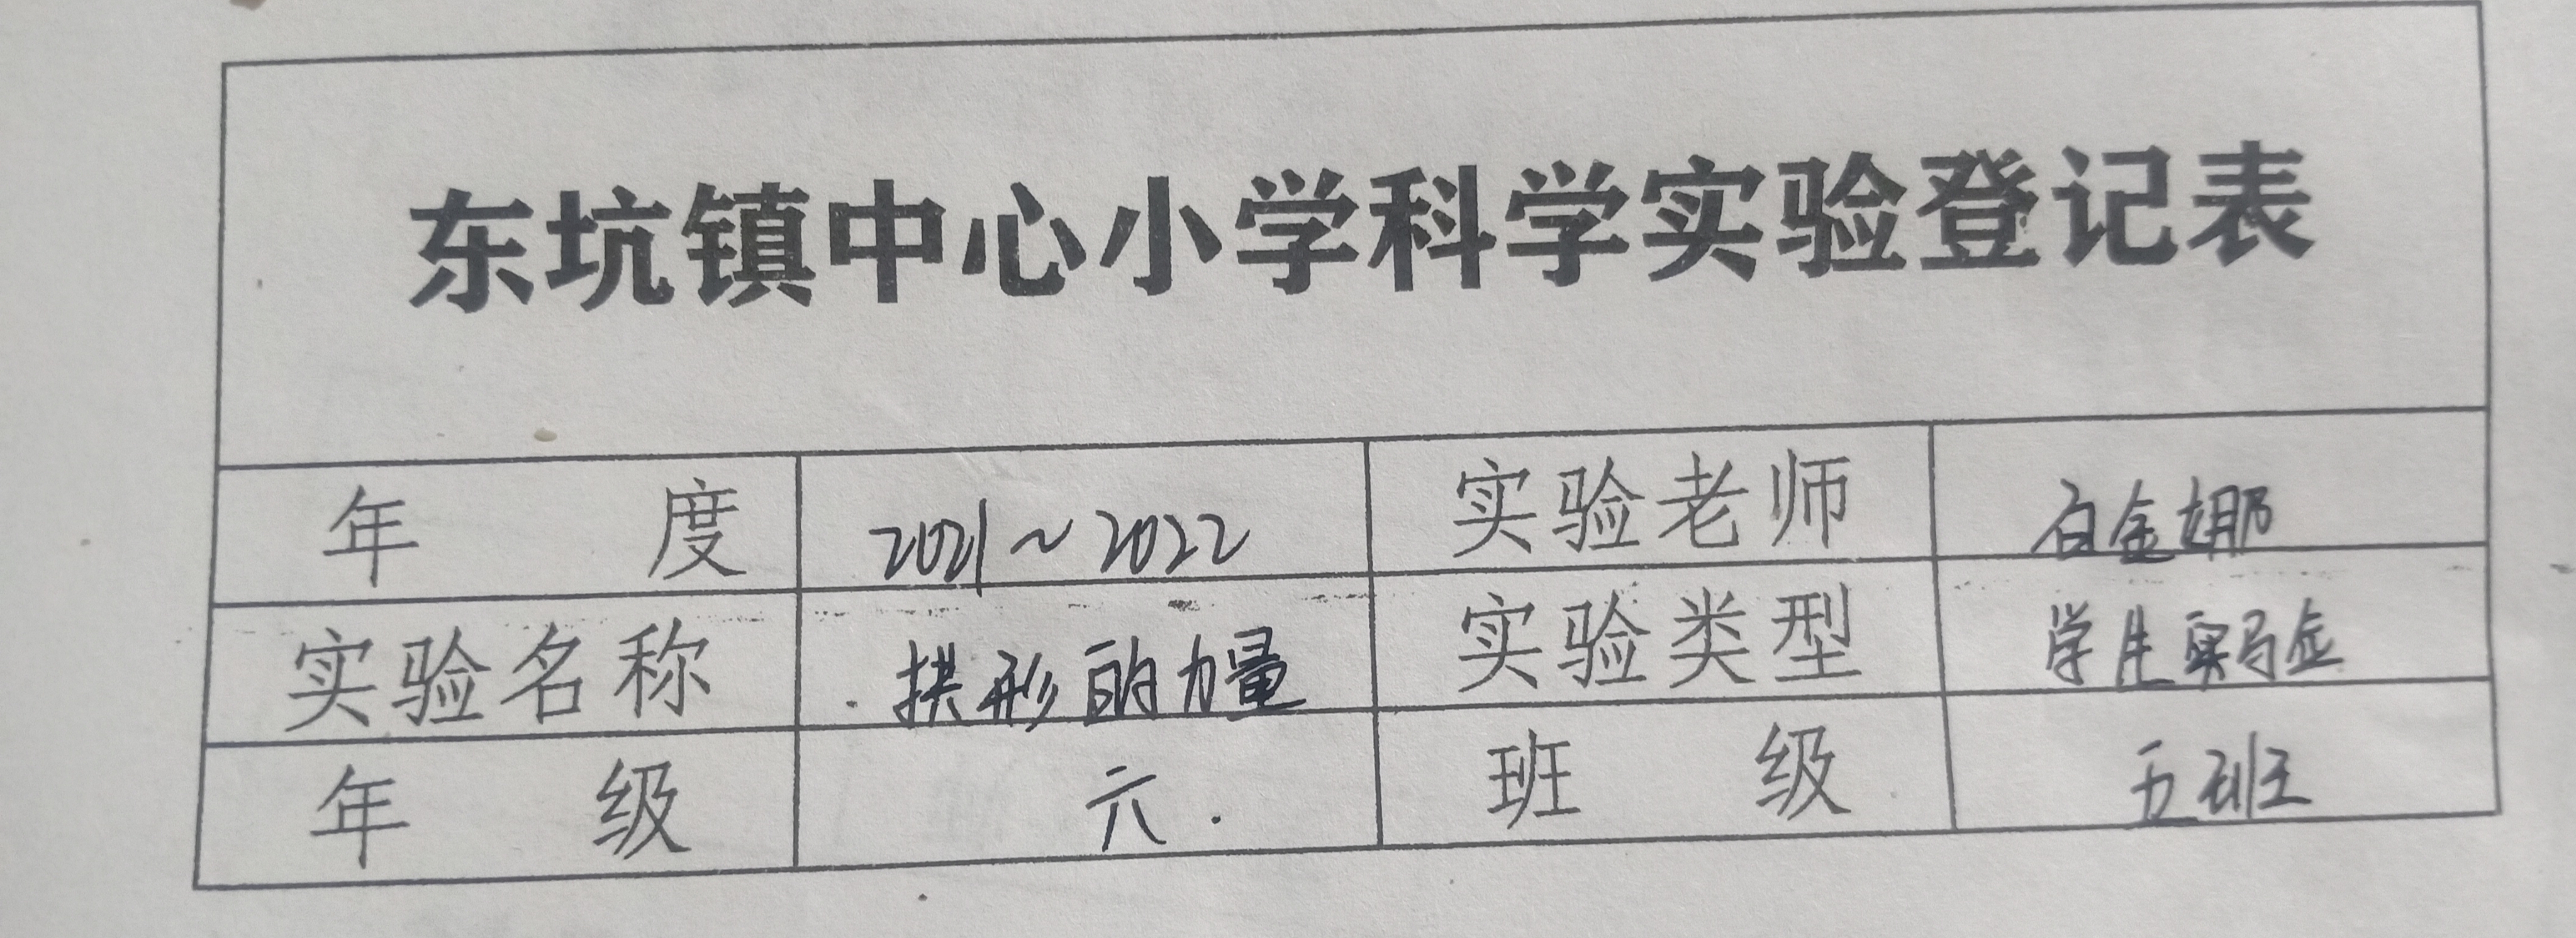 东坑镇中心小学科学实验登记表
年 度 2021~2022 实验老师 白金娜
实验名称 拱形的力量 实验类型 学生实验
年 级 六. 班 级 五班